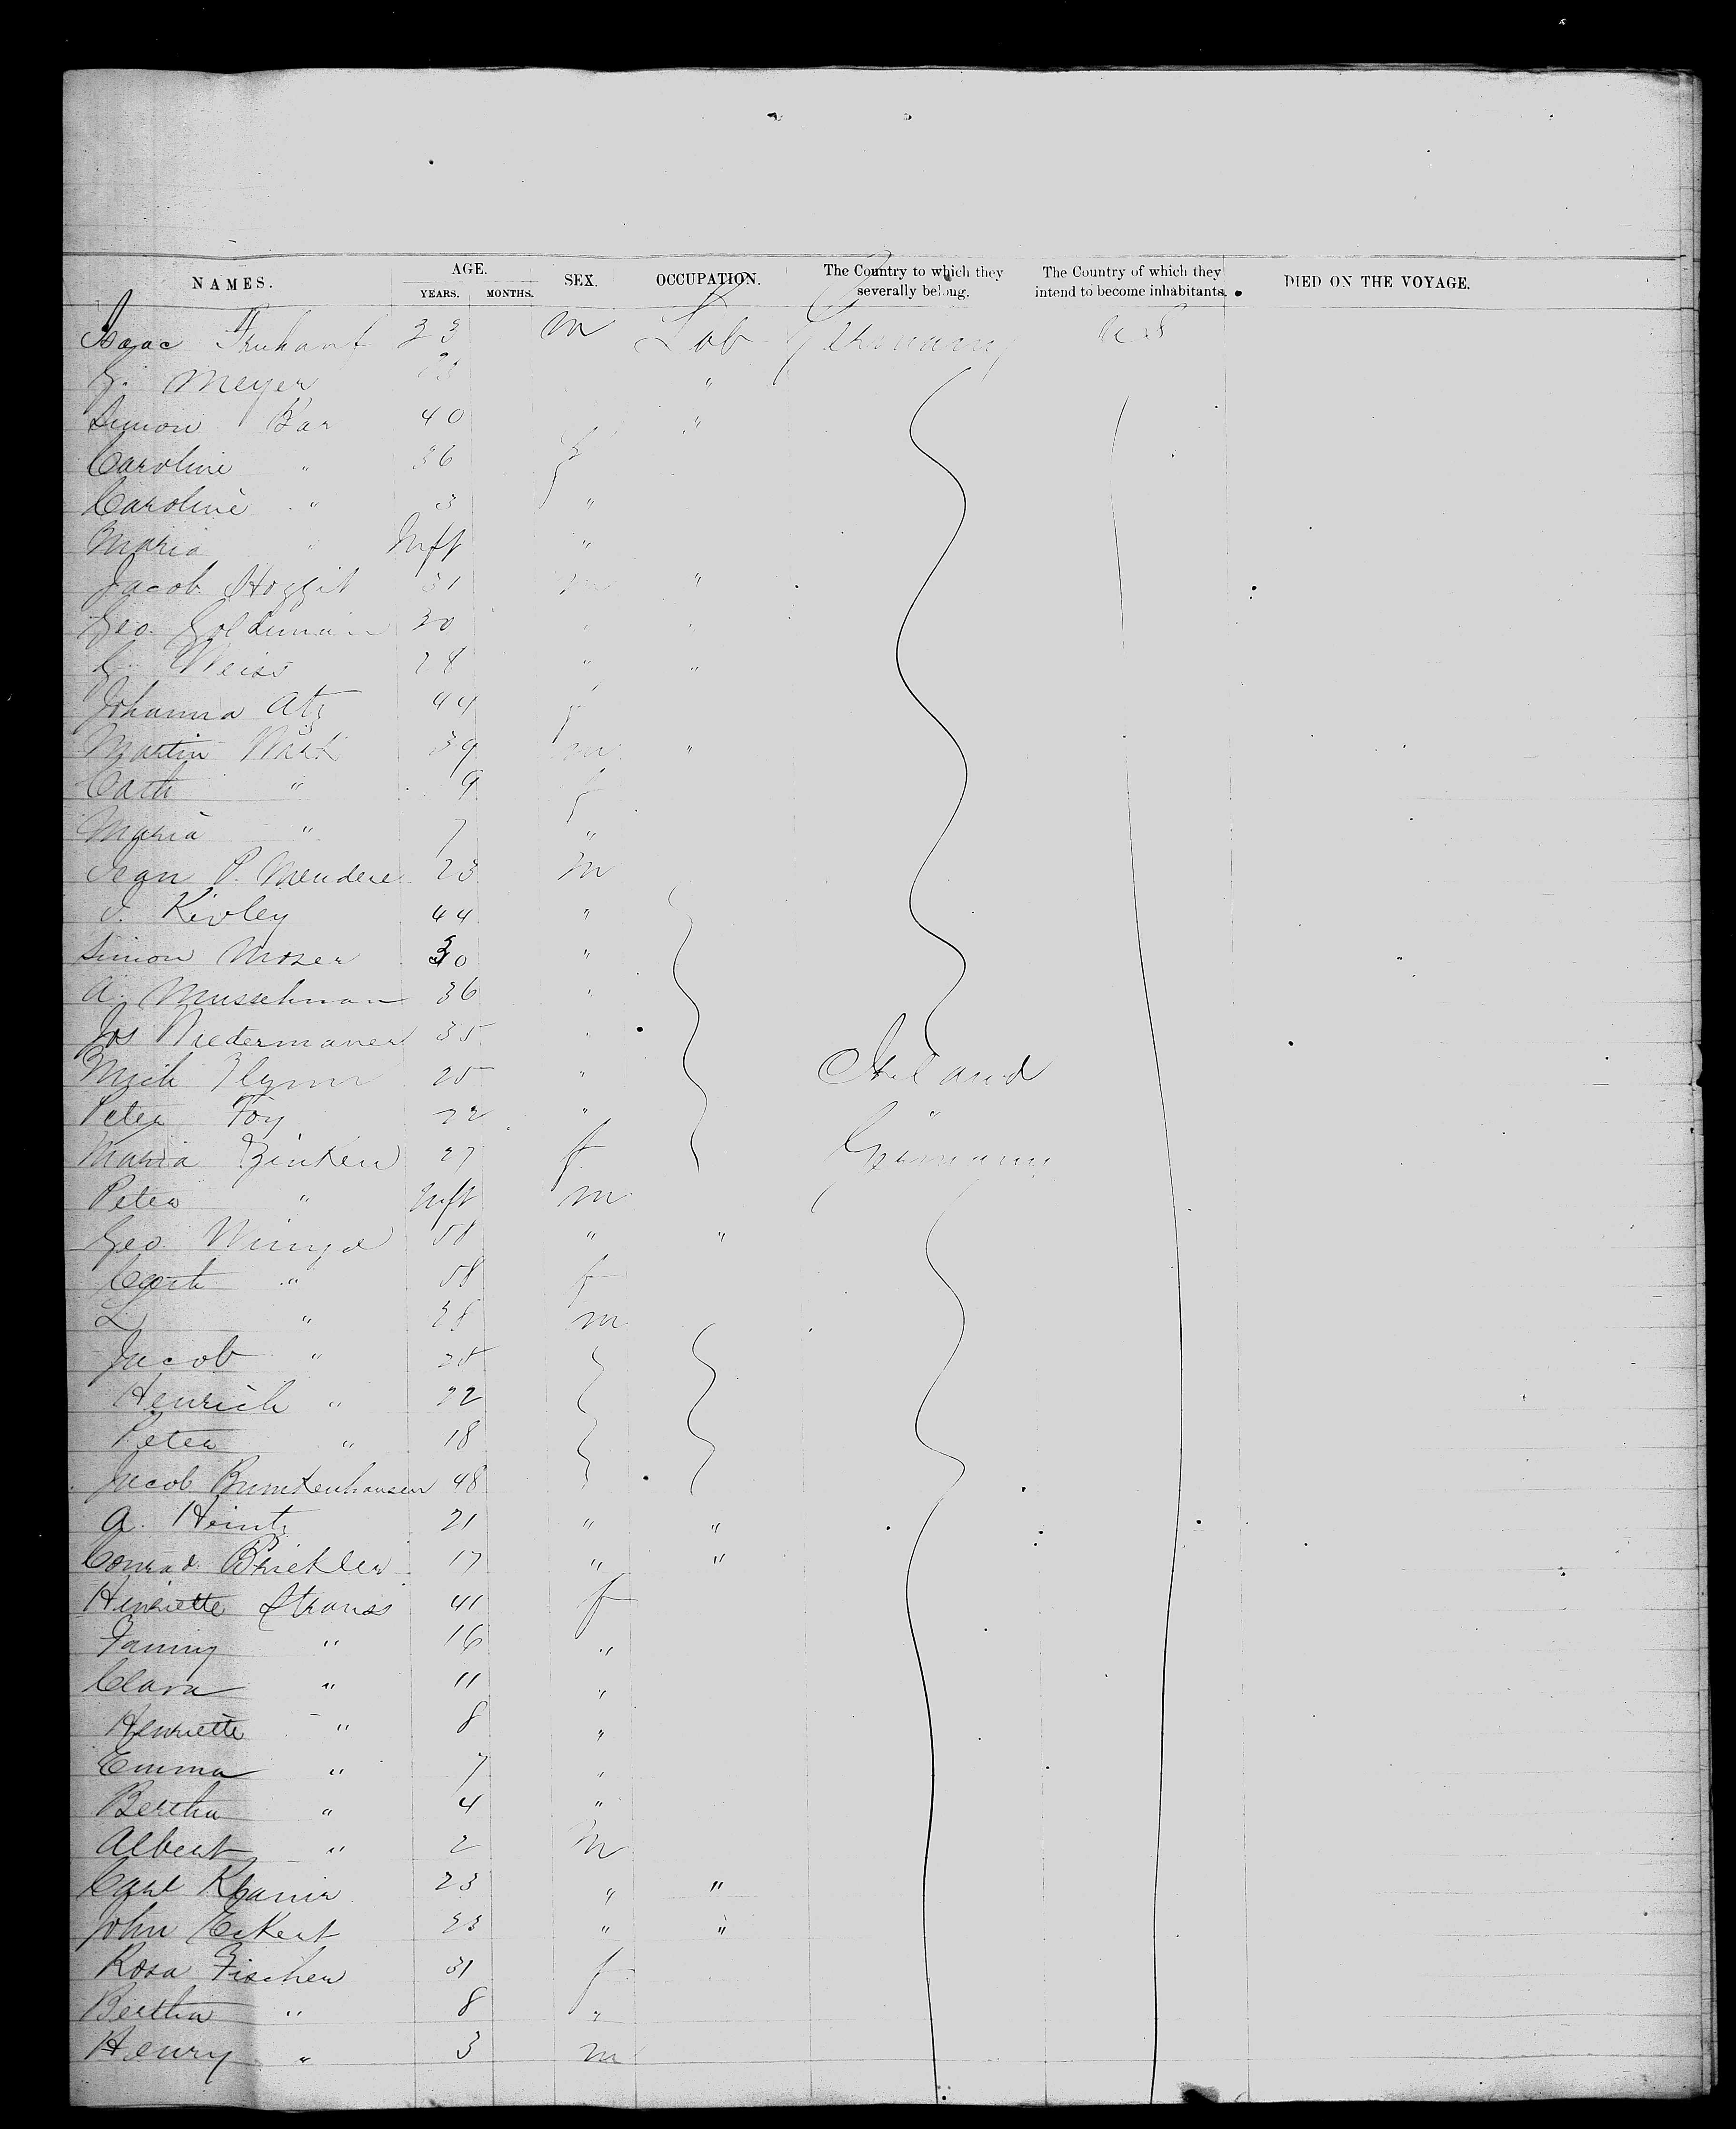 NAMES. AGE. YEARS. MONTHS. SEX. OCCUPATION. The Country to which they severally belong. The Country of which they intend to become inhabitants. DIED ON THE VOYAGE.
Isaac Fruhauf 33 m Lab Germany U S
G. Meyer "
Simon Bar 40 "
Caroline " 36 f
Caroline " 3 "
Maria " Inft "
Jacob 31 m "
Geo. Goldman 30 " "
G. Weiss 28 " "
Johanna Atz 44 f
Martin Wark 39 m "
Cath " 9 f
Maria " 7 "
Jean P. Mendere 23 m
J. Kivley 44 "
Simon Moser 30 "
A. Musselman 36 "
Jos Niedermaner 35 "
Mich Flynn 25 " Ireland
Peter Foy 22 " "
Maria Zinken 27 f Germany
Peter " Inft m
Geo. 58 " "
Cath " 58 f
L " 28 m
Jacob " 25
Henrich " 22
Peter " 18
Jacob 48
A. Heintz 21 " "
Conrad Brickler 17 " "
Henriette Strauss 41 f
Fanny " 16 "
Clara " 11 "
Henriette " 8 "
Emma " 7 "
Bertha " 4 "
Albert " 2 m
Carl 23 " "
John Eckert 23 " "
Rosa Fischer 31 f
Bertha " 8 "
Henry " 3 m